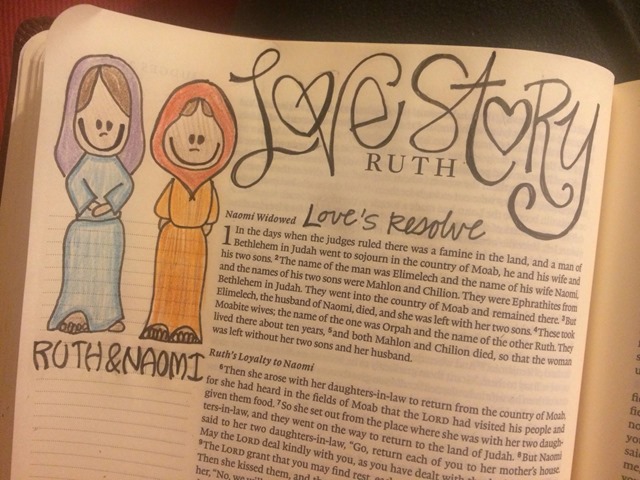 Love Story
RUTH
Naomi Widowed Love's Resolve
1 In the days when the judges ruled there was a famine in the land, and a man of
Bethlehem in Judah went to sojourn in the country of Moab, he and his wife and
his two sons. 2 The name of the man was Elimelech and the name of his wife Naomi,
and the names of his two sons were Mahlon and Chilion. They were Ephrathites from
Bethlehem in Judah. They went into the country of Moab and remained there. 3 But
Elimelech, the husband of Naomi, died, and she was left with her two sons. 4 These took
Moabite wives; the name of the one was Orpah and the name of the other Ruth. They
lived there about ten years, 5 and both Mahlon and Chilion died, so that the woman
was left without her two sons and her husband.
RUTH & NAOMI
Ruth's Loyalty to Naomi
6 Then she arose with her daughters-in-law to return from the country of Moab,
for she had heard in the fields of Moab that the LORD had visited his people and
given them food. 7 So she set out from the place where she was with her two daugh-
ters-in-law, and they went on the way to return to the land of Judah. 8 But Naomi
said to her two daughters-in-law, "Go, return each of you to her mother's house.
May the LORD deal kindly with you, as you have dealt with the
9 The LORD grant that you may find rest,
Then she kissed them, and
her, "No, we